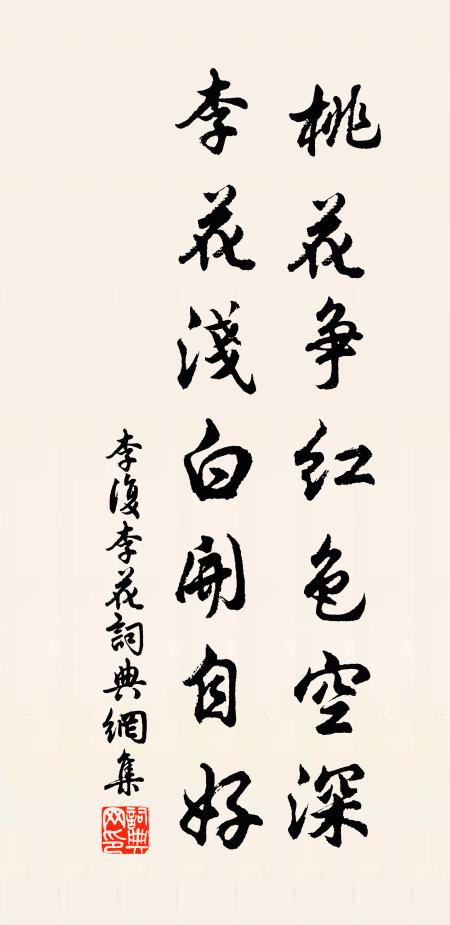 桃花争紅色空深
李花淺白開自好
李復李花詞典網集
詞典网印